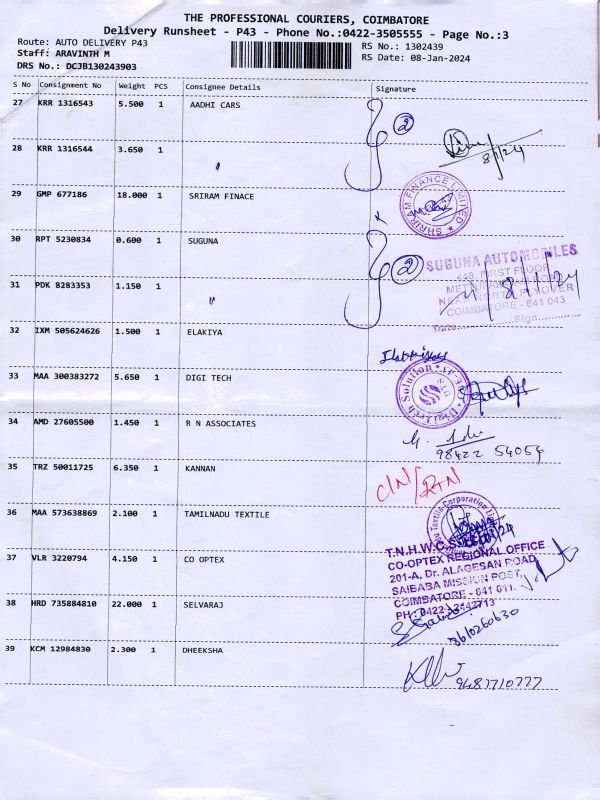 THE PROFESSIONAL COURIERS, COIMBATORE
Delivery Runsheet - P43 - Phone No.:0422-3505555 - Page No.:3
Route: AUTO DELIVERY P43 RS No.: 1302439
Staff: ARAVINTH M RS Date: 08-Jan-2024
DRS No.: DCJB130243903
S No Consignment No Weight PCS Consignee Details Signature
27 KRR 1316543 5.500 1 AADHI CARS 2
8/1/24
28 KRR 1316544 3.650 1 "
29 GMP 677186 18.000 1 SRIRAM FINACE
SHRIRAM FINANCE LIMITED
30 RPT 5230834 0.600 1 SUGUNA 2
SUGUNA AUTOMOBILES
443, FIRST FLOOR
31 PDK 8283353 1.150 1 " 8/1/24
COIMBATORE - 641 043
Date Sign
32 IXM 505624626 1.500 1 ELAKIYA
33 MAA 300383272 5.650 1 DIGI TECH
Digitech Solution
34 AMD 27605500 1.450 1 R N ASSOCIATES
98422 54054
35 TRZ 50011725 6.350 1 KANNAN
CIN/RTN
36 MAA 573638869 2.100 1 TAMILNADU TEXTILE
Textile Corporation
T.N.H.W.C.S.
37 VLR 3220794 4.150 1 CO OPTEX
CO-OPTEX REGIONAL OFFICE
201-A, Dr. ALAGESAN ROAD,
SAIBABA MISSION POST,
COIMBATORE - 641 011.
38 HRD 735884810 22.000 1 SELVARAJ
PH: 0422-2442713
39 KCM 12984830 2.300 1 DHEEKSHA
9487710777